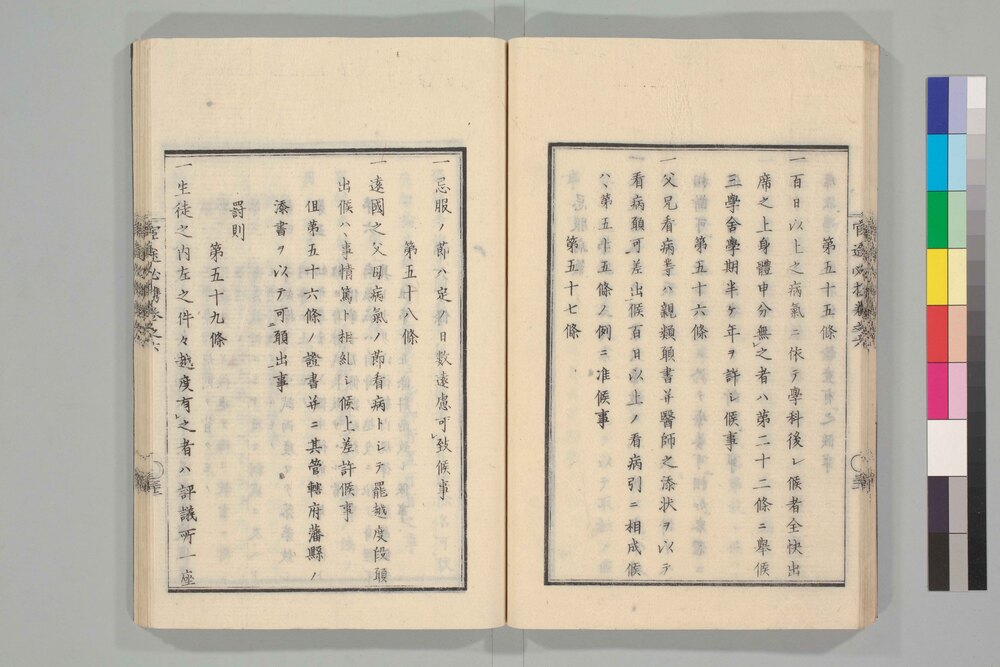 第五十五條
一百日以上之病氣ニ依テ學科後レ候者全快出
席之上身體申分無之者ハ第二十二條ニ準候
三學舍學期半ケ年ヲ許シ候事
第五十六條
一父兄看病等ハ親類願書并醫師之添狀ヲ以テ
看病願可差出候百日以上ノ看病引ニ相成候
ハ、第五十五條ノ例ニ准候事
第五十七條
一忌服ノ節ハ定ノ日數遠慮可致候事
第五十八條
一遠國之父母病氣ノ節看病トシテ罷越度段願
出候ハ、事情篤ト相糺シ候上差許候事
但第五十六條ノ證書并ニ其管轄府藩縣ノ
添書ヲ以テ可願出事
罰則
第五十九條
一生徒之內左之件々越度有之者ハ評議所一座